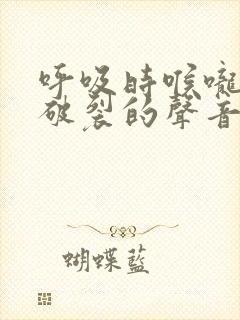 呼吸時喉嚨
破裂的聲音
蝴蝶藍